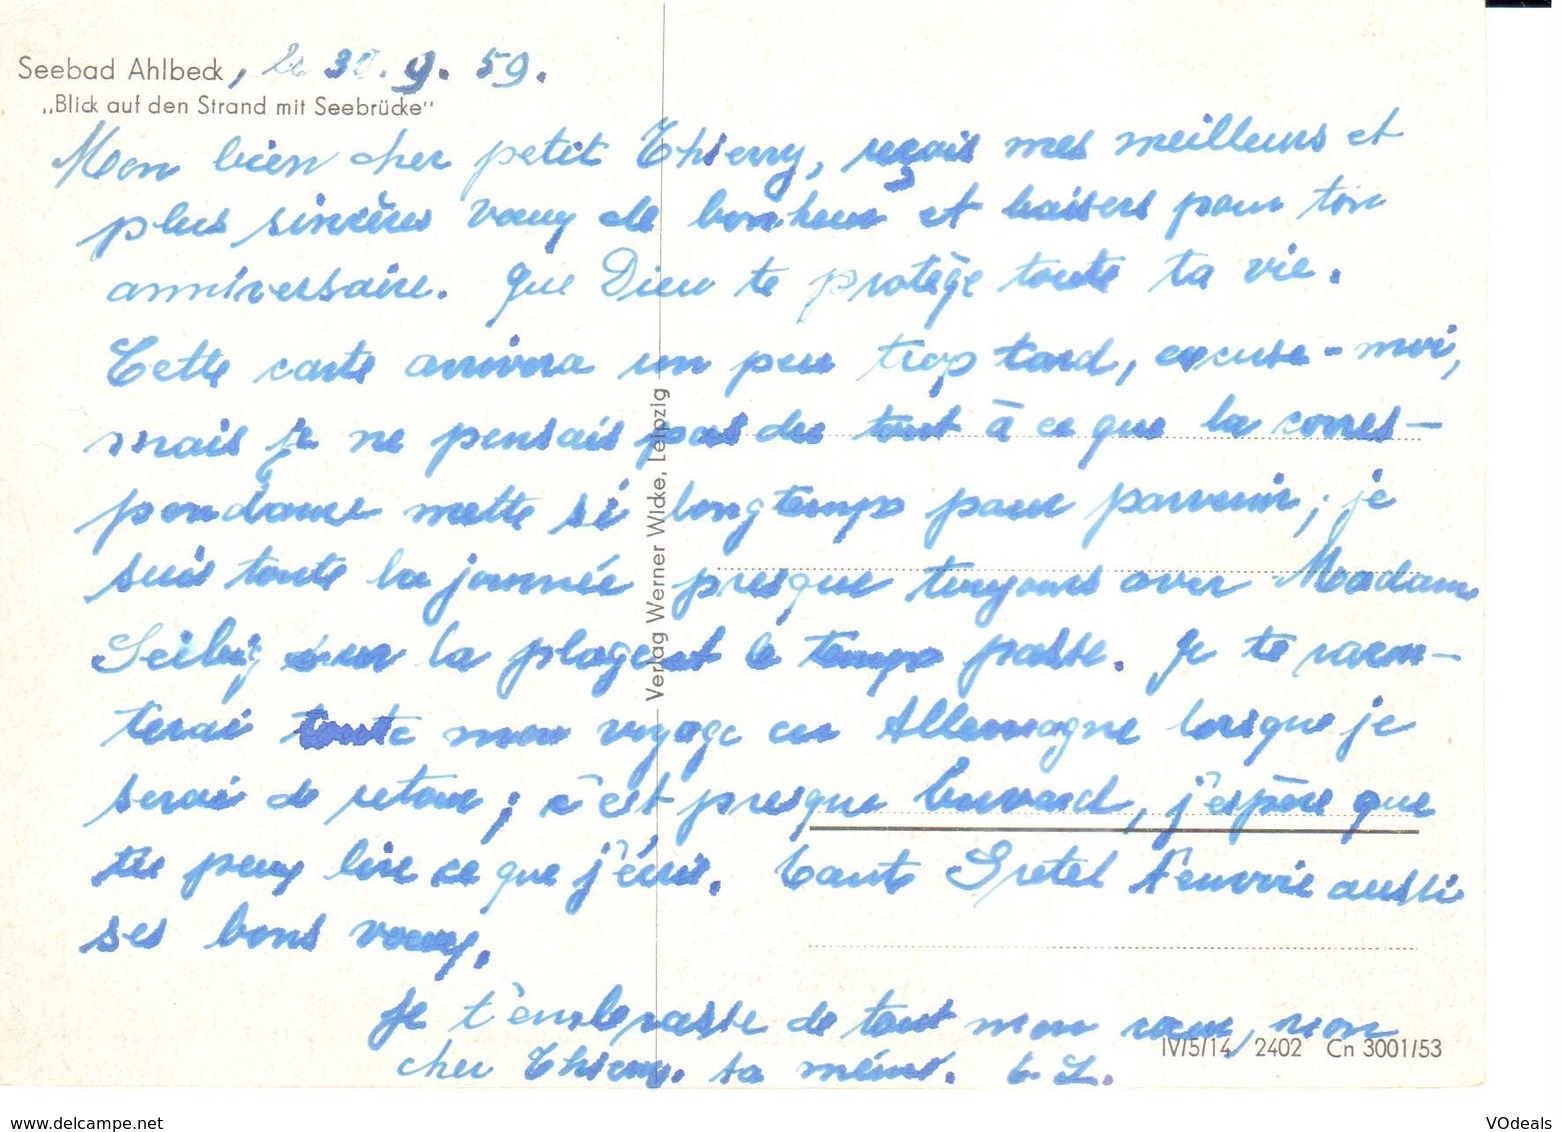 Seebad Ahlbeck, le 30.9.59.
„Blick auf den Strand mit Seebrücke"
Mon bien cher petit Thierry, reçois mes meilleurs et
plus sincères vœux de bonheur et baisers pour ton
anniversaire. Que Dieu te protège toute ta vie.
Cette carte arrivera un peu trop tard, excuse-moi,
mais je ne pensais pas du tout à ce que la corres-
pondance mette si longtemps pour parvenir; je
suis toute la journée presque toujours avec Madame
sur la plage et le temps passe. Je te racon-
terai toute mon voyage en Allemagne lorsque je
serai de retour; c'est presque buvard, j'espère que
tu peux lire ce que j'écris. Tante Gretel t'envoie aussi
ses bons vœux.
Je t'embrasse de tout mon cœur, mon
cher Thierry. ta mémé. G. L.
Verlag Werner Wicke, Leipzig
IV/5/14 2402 Cn 3001/53
VOdeals
www.delcampe.net